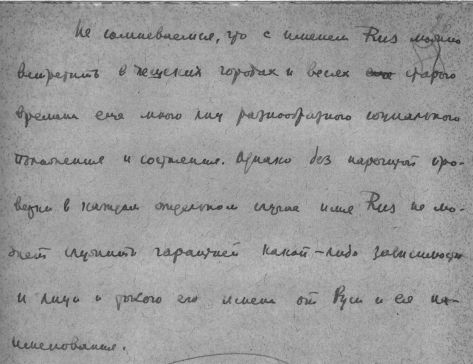 Не сомневаемся, что с именем Rus можно
встретить в чешских городах и весях старого
времени еще много лиц разнообразного социального
положения и состояния. Однако без нарочитой про-
верки в каждом отдельном случае имя Rus не мо-
жет служить гарантией какой-либо зависимости
и лица и самого его имени от Руси и ея на-
именования.